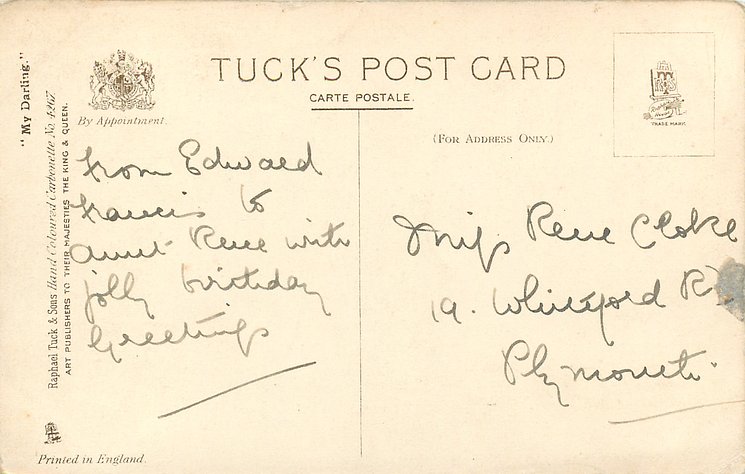 "My Darling."
Raphael Tuck & Sons Hand Coloured Carbonette No. 4267.
ART PUBLISHERS TO THEIR MAJESTIES THE KING & QUEEN.
By Appointment.
TUCK'S POST CARD
CARTE POSTALE.
(FOR ADDRESS ONLY.)
TRADE MARK
from Edward
Francis to
Aunt Rene with
jolly birthday
Greetings
Miss Rene Cloke
19. Whiteford Rd
Plymouth.
Printed in England.